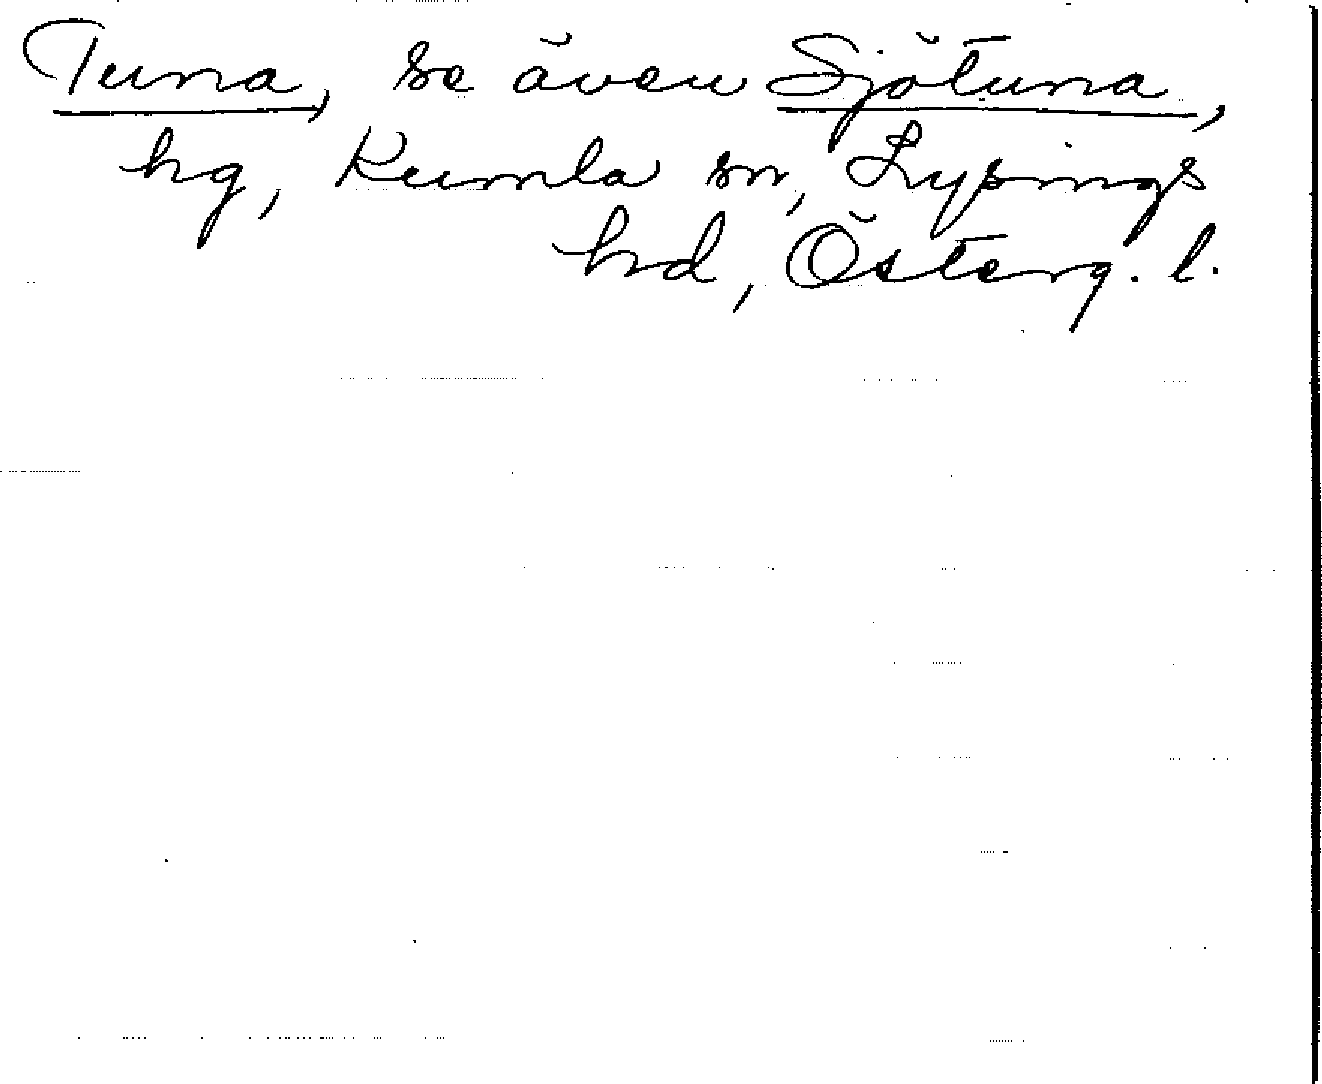 Tuna, se även Sjötuna,
hg, Kumla sn, Lysings
hd, Österg. l.